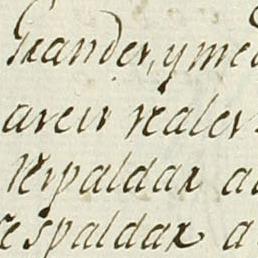 Grandes, y me
areis reales
Respaldar a
respaldar a